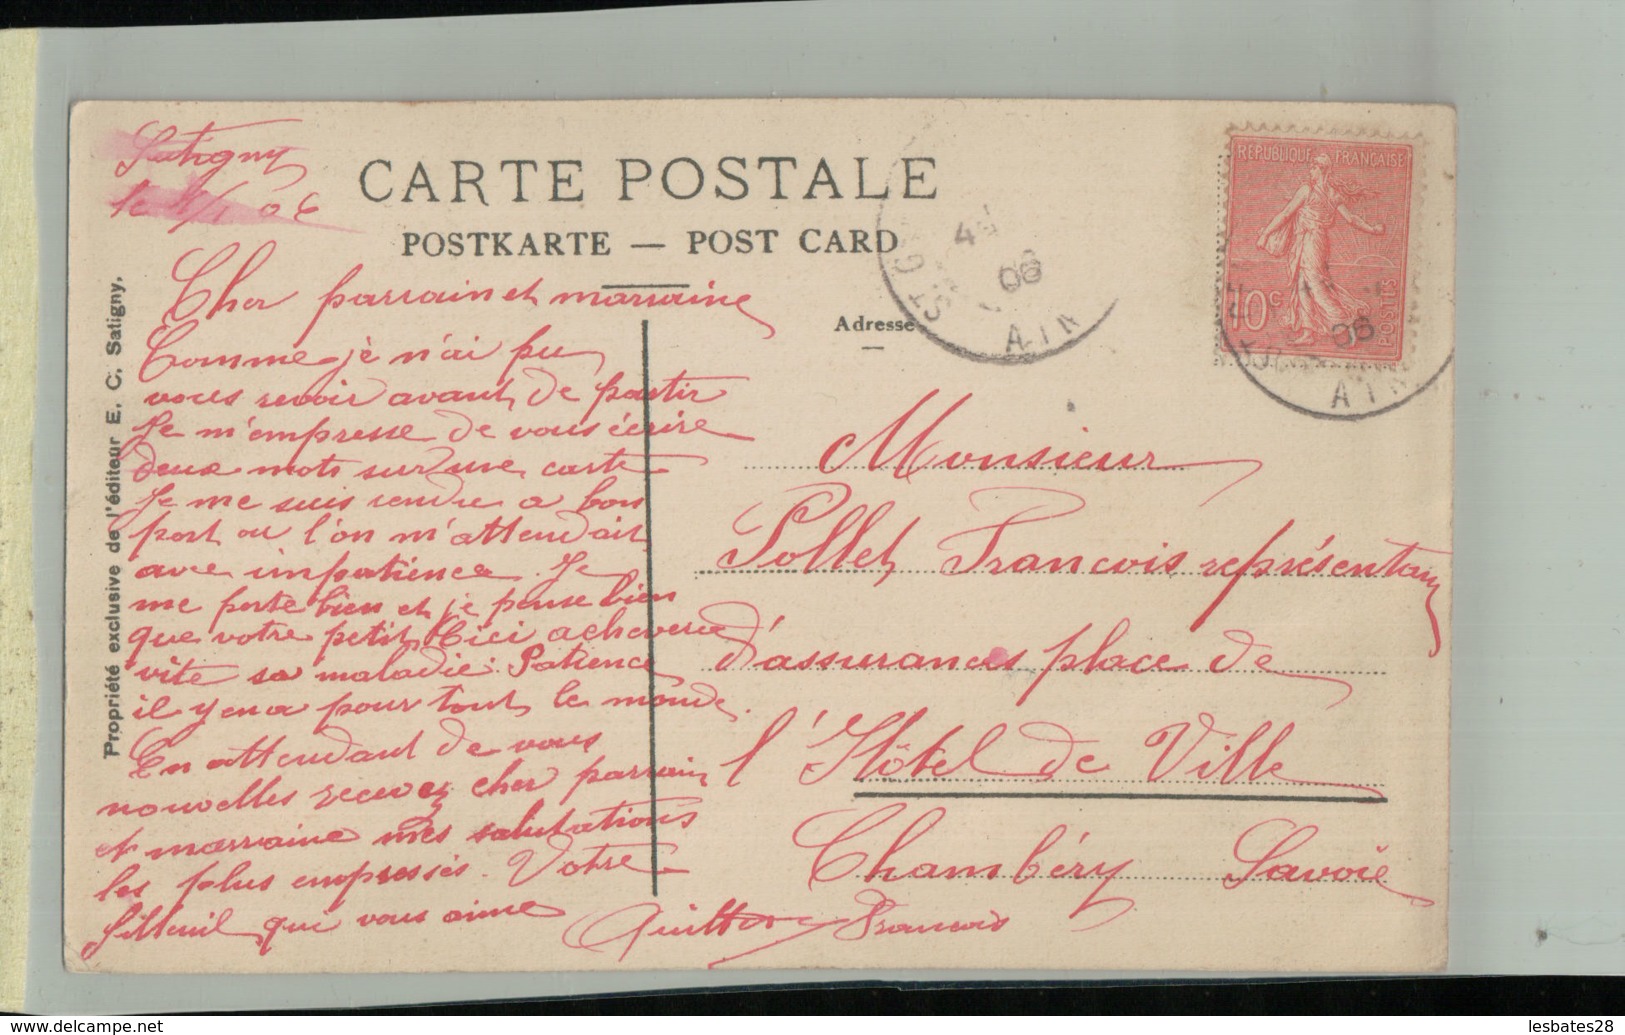 Satigny
le 06
CARTE POSTALE
POSTKARTE — POST CARD
Cher parrain et marraine
Comme je n'ai pu
vous revoir avant de partir
Je m'empresse de vous écrire
deux mots sur une carte
Je me suis rendu a bon
port ou l'on m'attendait
avec impatience. Je
me porte bien et je pense bien
que votre petit achevera
vite sa maladie. Patience
il y en a pour tout le monde.
En attendant de vous
nouvelles recevez cher parrain
et marraine mes salutations
les plus empressés. Votre
filleuil qui vous aime
François
Propriété exclusive de l'éditeur E. C. Satigny.
Adresse
Monsieur
Pollet François représentant
d'assurances place de
l'Hôtel de Ville
Chambéry Savoie
REPUBLIQUE FRANÇAISE
10c
POSTES
06
AIN
06
AIN
delcampe.net
lesbates28